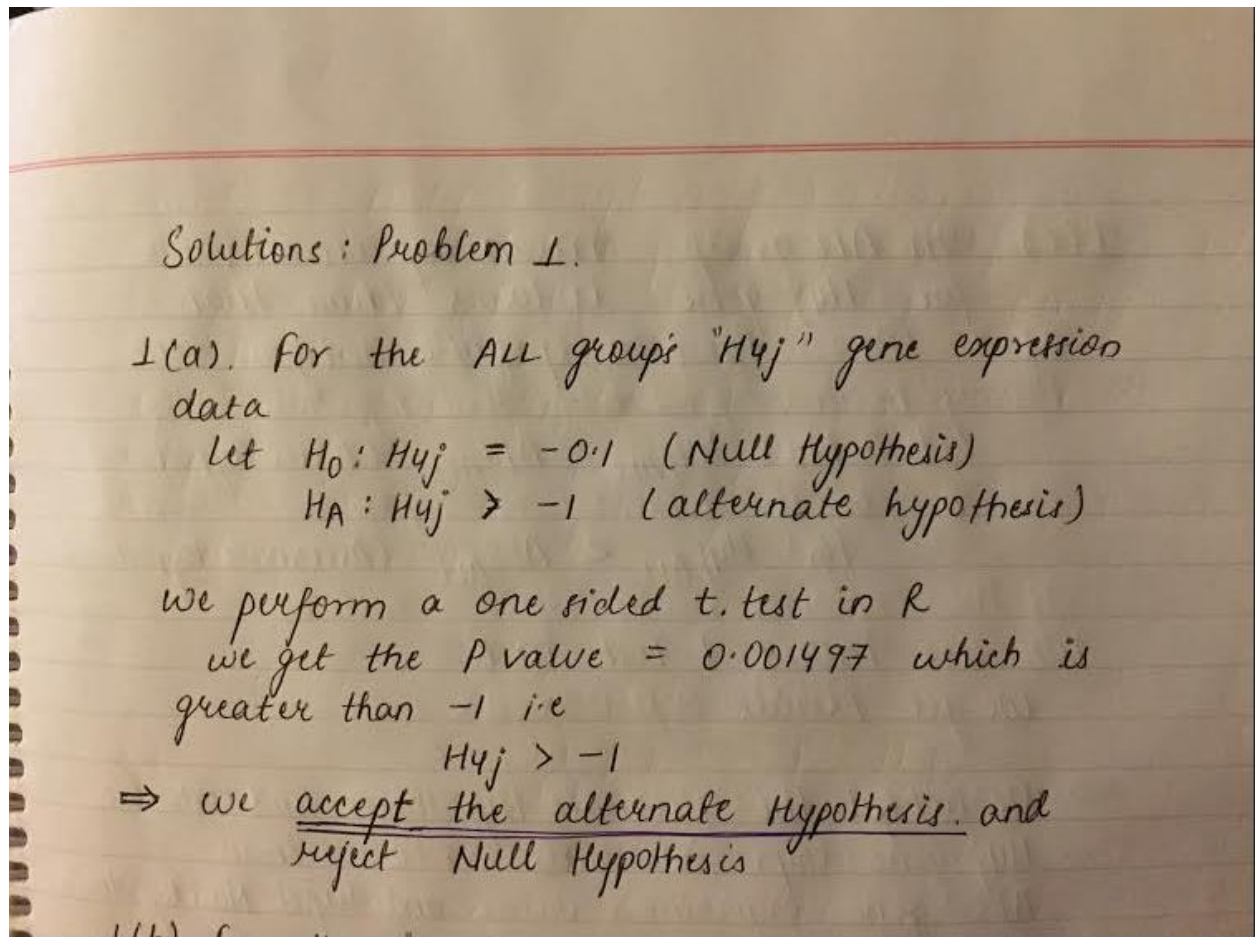 Solutions : Problem 1.
1(a). For the ALL group's "H4j" gene expression
data
Let H0 : H4j = -0.1 (Null Hypothesis)
HA : H4j > -1 (alternate hypothesis)
we perform a one sided t.test in R
we get the P value = 0.001497 which is
greater than -1 i.e
H4j > -1
⇒ we accept the alternate Hypothesis. and
reject Null Hypothesis